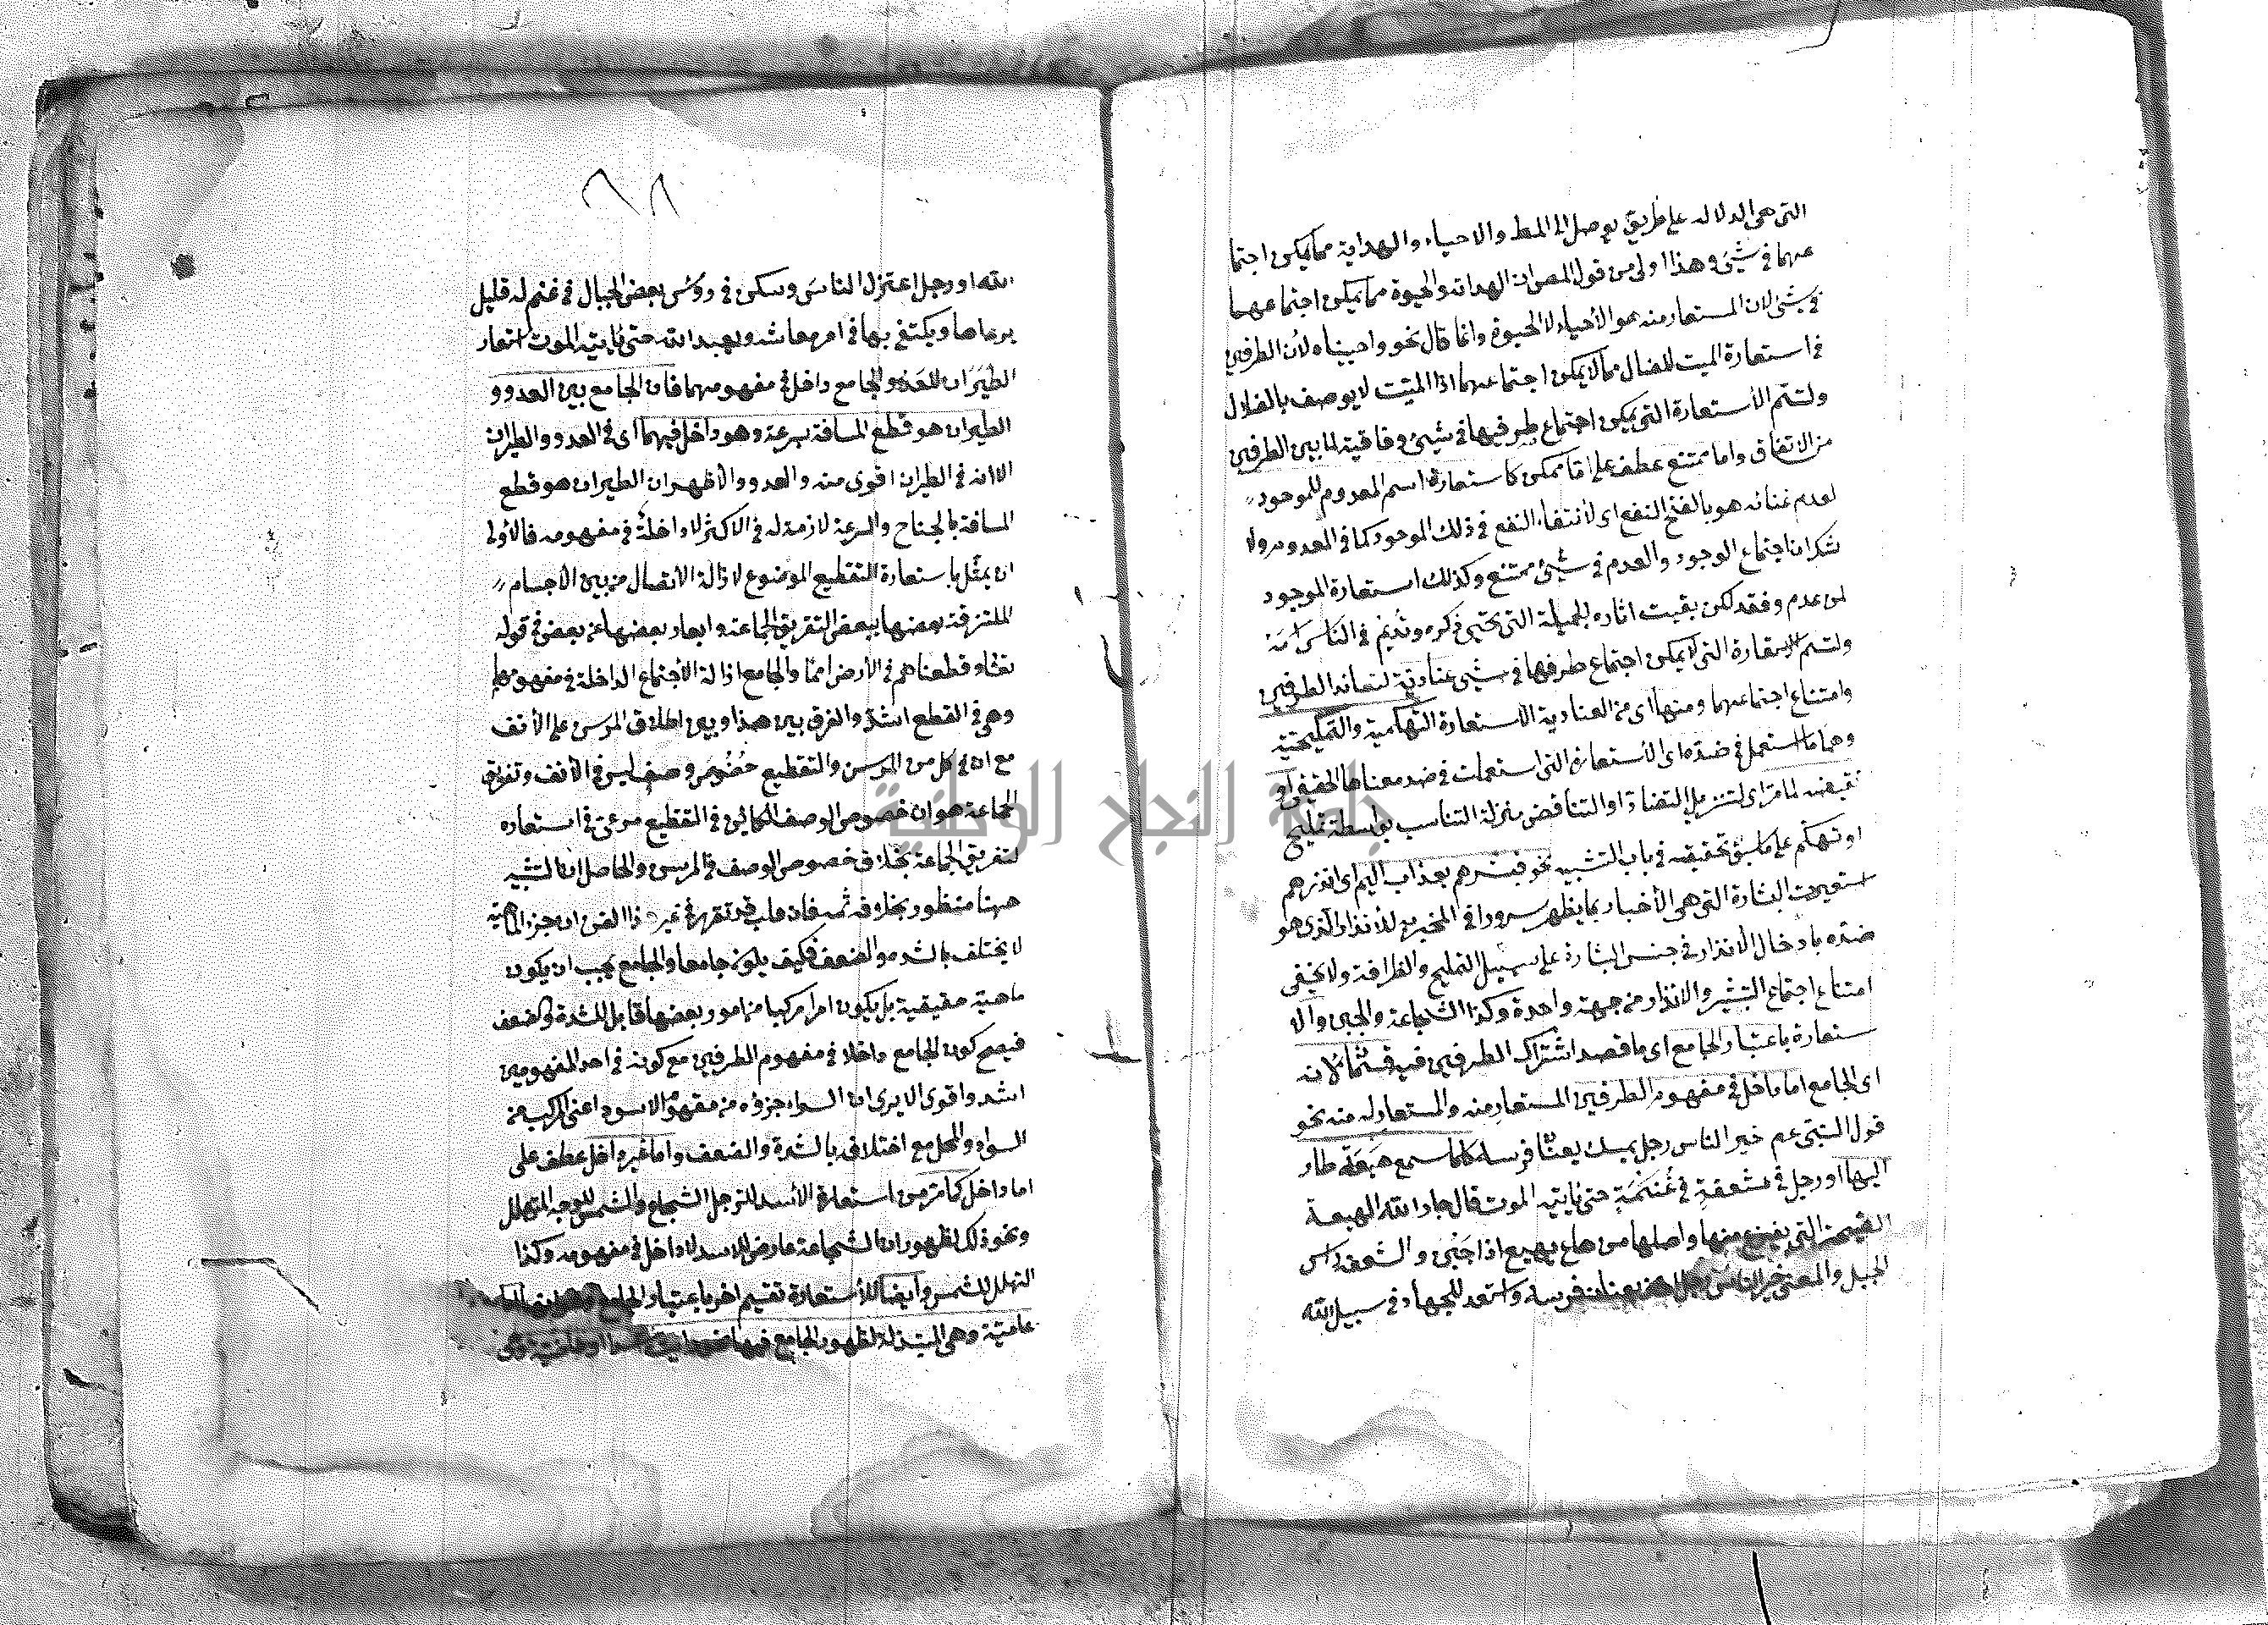 التى هى الدلالة على طريق يوصل الى المط والاحياء والهداية مما يمكن اجتما
عهما فى شيئ وهذا اولى من قول المص ان الهداية والحيوة مما يمكن اجتماعهما
فى شيئ لان المستعار منه هو الأحياء لا الحيوة وانما قال نحو واحييناه لأن الطرفين
فى استعارة الميت للضال مما لا يمكن اجتماعهما اذ الميت لا يوصف بالضلال
ولتسم الأستعارة التى يمكن اجتماع طرفيها فى شيئ وفاقية لما بين الطرفين
من الاتفاق واما ممتنع عطف على اما ممكن كاستعارة اسم المعدوم للموجود
لعدم غنائه هو بالفتح النفع اى لأنتفاء النفع فى ذلك الموجود كما فى المعدوم ولا
شك ان اجتماع الوجود والعدم فى شيئ ممتنع وكذلك استعارة الموجود
لمن عدم وفقد لكن بقيت اثاره الجميلة التى تحيى ذكره وتديم فى الناس اسمه
ولتسم الاستعارة التى لا يمكن اجتماع طرفيها فى شيئ عنادية لتعاند الطرفين
وامتناع اجتماعهما ومنها اى من العنادية الأستعارة التهكمية والتمليحية
وهما ما استعمل فى ضده اى الأستعارة التى استعملت فى ضد معناها الحقيقى او
نقيضه لما مر اى لتنزيل التضاد او التناقض منزلة التناسب بواسطة تمليح
او تهكم على ما سبق تحقيقه فى باب التشبيه نحو فبشرهم بعذاب اليم اى انذرهم
استعيرت البشارة التى هى الأخبار بما يظهر سرورا فى المخبر به للأنذار الذى هو
ضده بادخال الأنذار فى جنس البشارة على سبيل التمليح والظرافة ولا يخفى
امتناع اجتماع التبشير والانذار من جهة واحدة وكذا الشجاعة والجبن والا
ستعارة باعتبار الجامع اى ما قصد اشتراك الطرفين فيه قسمان لانه
اى الجامع اما داخل فى مفهوم الطرفين المستعار منه والمستعار له منه نحو
قول النبى عم خير الناس رجل يمسك بعنان فرسه كلما سمع هيعة طار
اليها او رجل فى شعفة فى غنيمة حتى يأتيه الموت قال جار الله الهيعة
الصيحة التى يفزع منها واصلها من هاع يهيع اذا جبن والشعفة راس
الجبل والمعنى خير الناس رجل اخذ بعنان فرسه واستعد للجهاد فى سبيل الله
٦٨
الله او رجل اعتزل الناس وسكن فى رؤس بعض الجبال فى غنم له قليل
يرعاها ويكتفى بها فى امر معاشه ويعبد الله حتى يأتيه الموت استعار
الطيران للعدو والجامع داخل فى مفهومهما فان الجامع بين العدو و
الطيران هو قطع المسافة بسرعة وهو داخل فيهما اى فى العدو والطيران
الا انه فى الطيران اقوى منه والعدو والأظهر ان الطيران هو قطع
المسافة بالجناح والسرعة لازمة له فى الاكثر لا داخلة فى مفهومه فالأولى
ان يمثل باستعارة التقطيع الموضوع لازالة الاتصال من بين الأجسام
الملتزقة بعضها ببعض التفريق الجماعة وابعاد بعضها عن بعض فى قوله
تعالى وقطعناهم فى الأرض امما والجامع ازالة الأجتماع الداخلة فى مفهومهما
وهى فى القطع اشد والفرق بين هذا وبين اطلاق المرسن على الأنف
مع ان فى كل من المرسن والتقطيع خصوص وصف ليس فى الأنف وتفريق
الجماعة هو ان خصوص الوصف الكائن فى التقطيع مرعى فى استعاره
لتفريق الجماعة بخلاف خصوص الوصف فى المرسن والحاصل ان التشبيه
ههنا منظور بخلافه ثمه فان قلت قد تقرر فى غير هذا الفن ان جزء الماهية
لا يختلف بالشدة والضعف فكيف يكون جامعا والجامع يجب ان يكون
ماهية حقيقية بل يكون امرا مركبا من امور بعضها قابل للشدة والضعف
فيصح كون الجامع داخلا فى مفهوم الطرفين مع كونه فى احد المفهومين
اشد واقوى الا يرى ان السواد جزؤه من مفهوم الاسود اعنى المركب من
السواد والمحل مع اختلافه بالشدة والضعف واما غير داخل عطف على
اما داخل كما مر من استعارة الأسد للرجل الشجاع والشمس للوجه المتهلل
ونحو ذلك لظهور ان الشجاعة عارض للاسد لا داخل فى مفهومه وكذا
التهلل للشمس وايضا للأستعارة تقسيم اخر باعتبار الجامع وهو انها اما
عامية وهى المبتذلة لظهور الجامع فيها نحو رايت اسدا او خاصية
جامعة النجاح الوطنية